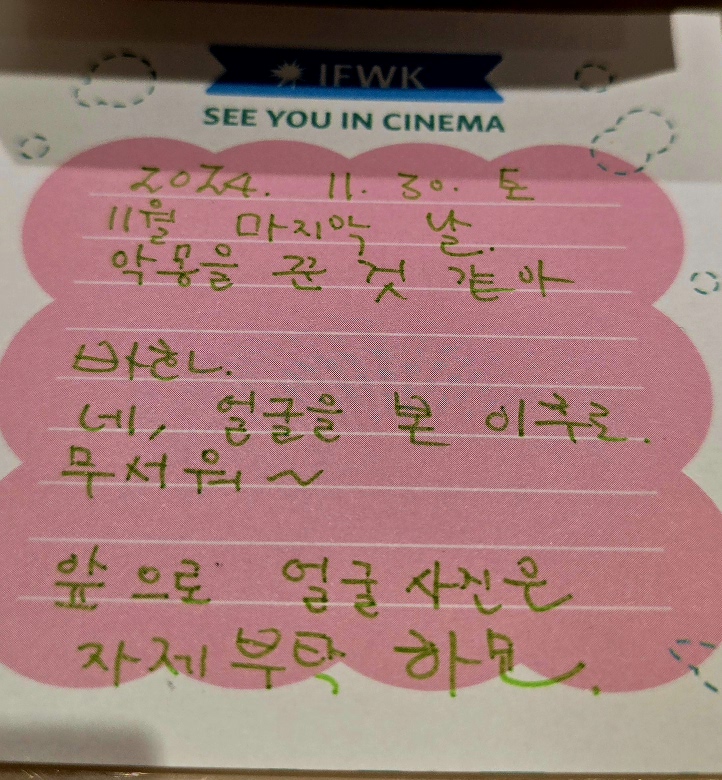 IFWK
SEE YOU IN CINEMA
2024. 11. 30. 토
11월 마지막 날.
악몽을 꾼 것 같아
네, 얼굴을 본 이후로.
무서워~
앞으로 얼굴 사진은
자제부탁